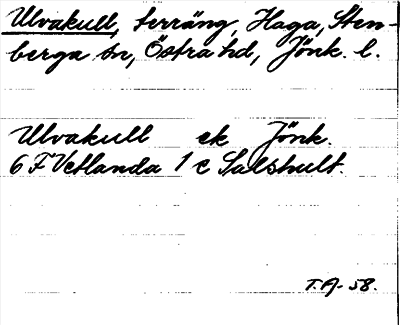 Ulvakull, terräng, Haga, Sten-
berga sn, Östra hd, Jönk. l.
Ulvakull ek Jönk.
6 F Vetlanda 1 c Salshult.
T.A. 58.